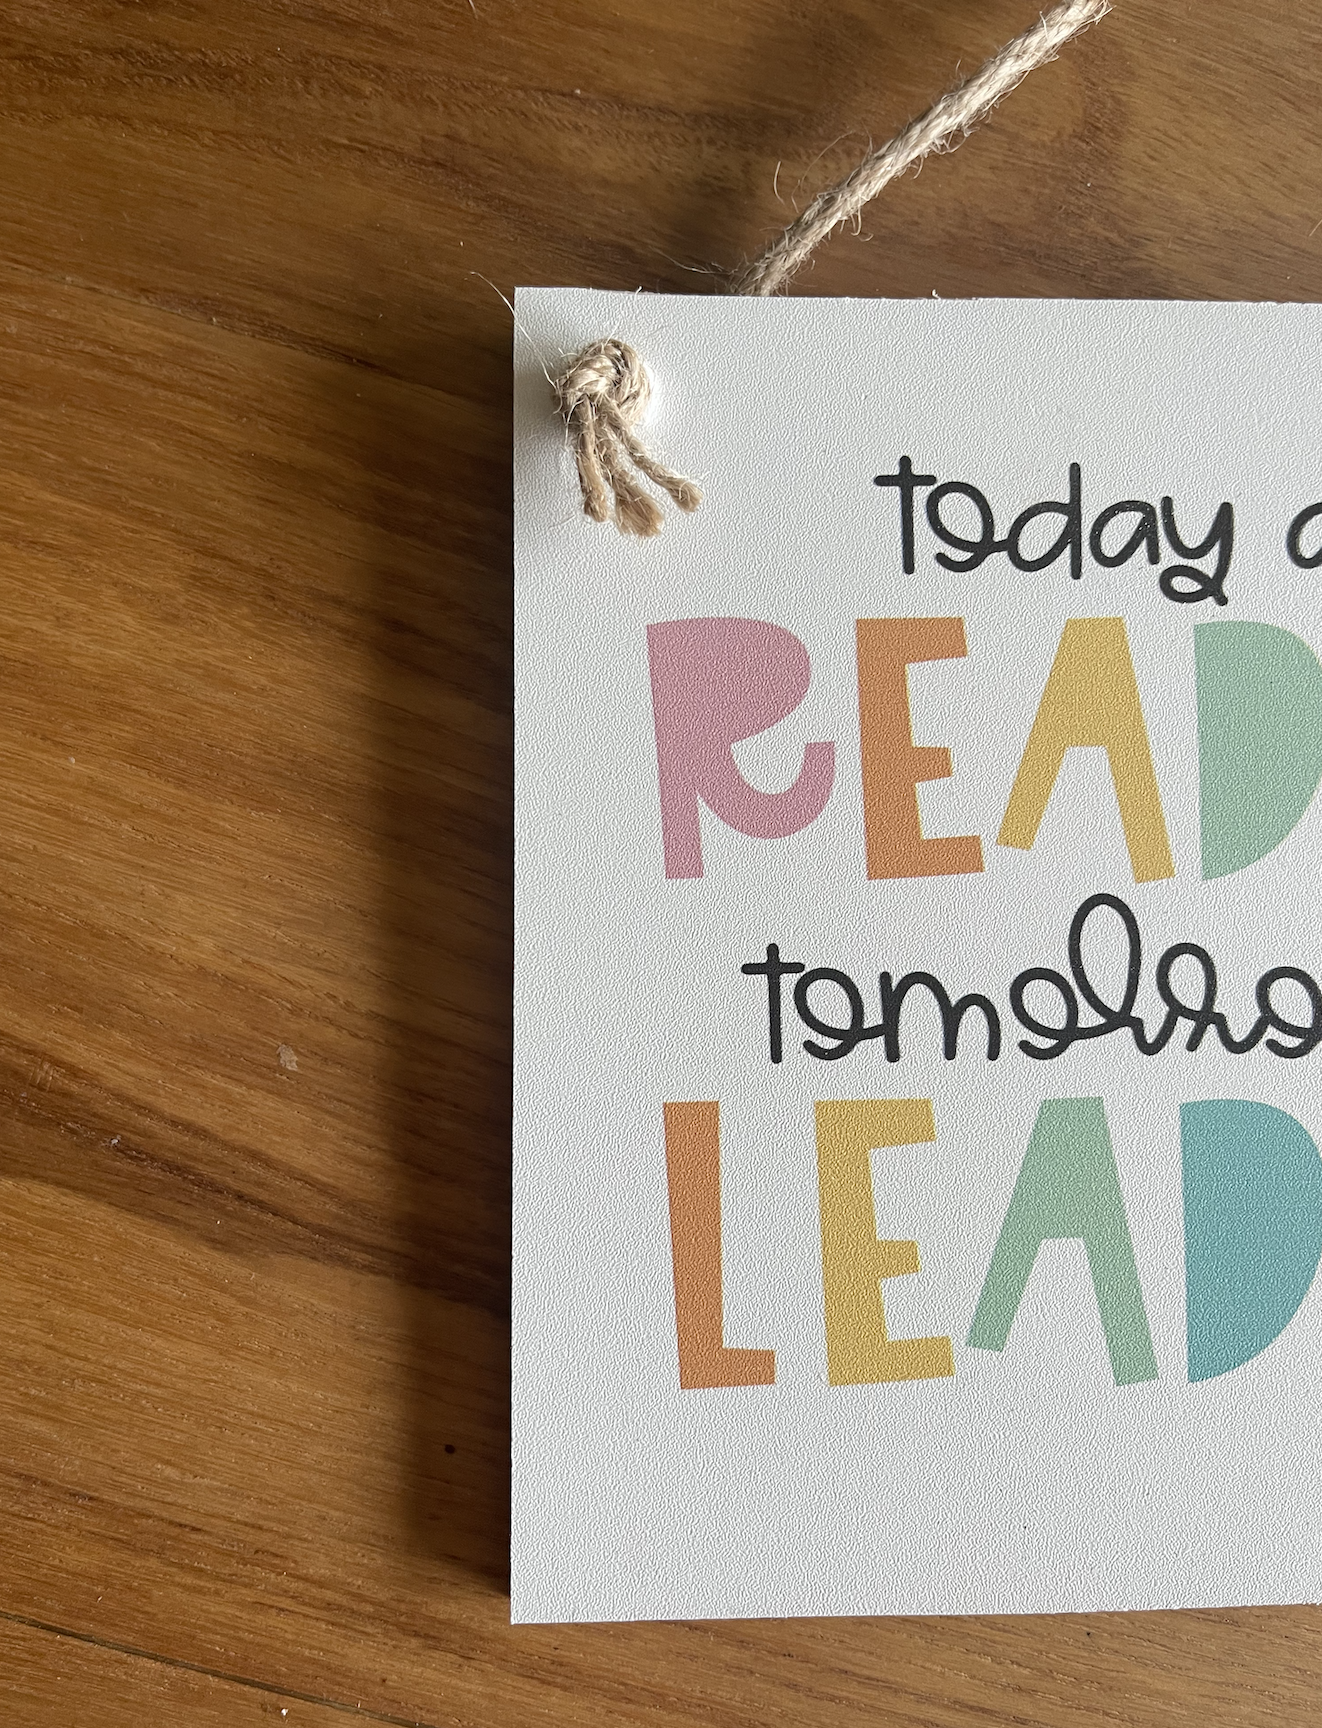 today a
READ
tomorro
LEAD